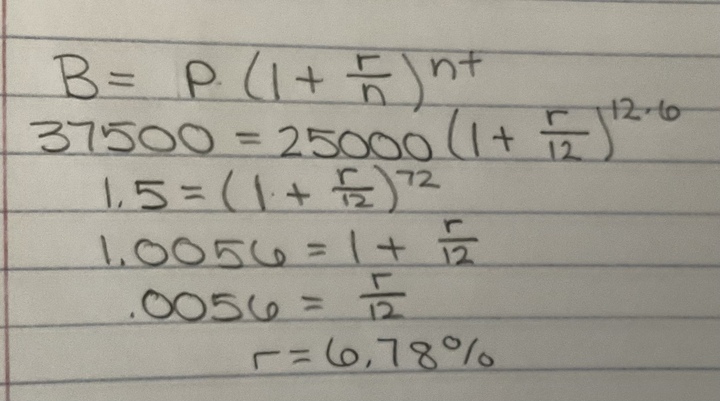 B = P (1 + r/n)^nt
37500 = 25000 (1 + r/12)^12·6
1.5 = (1 + r/12)^72
1.0056 = 1 + r/12
.0056 = r/12
r = 6.78%